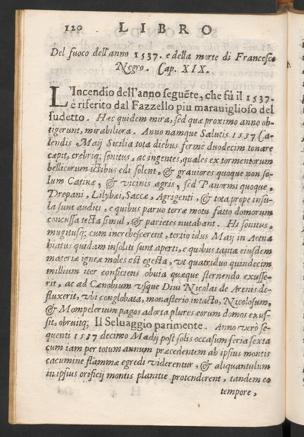 120 LIBRO
Del fuoco dell'anno 1537. e della morte di Francesco
Negro. Cap. XIX.
L'Incendio dell'anno seguẽte, che fù il 1537.
è riferito dal Fazzello piu marauiglioso del
sudetto. Hæc quidem mira, sed quæ proximo anno ob-
tigerunt, mirabiliora. Anno namque Salutis 1537 Ca-
lendis Maij Sicilia tota diebus fermè duodecim tonare
cæpit, crebriq; sonitus, ac ingentes, quales ex tormentorum
bellicorum ictibus edi solent, & grauiores quoque non so-
lum Catinæ, & vicinis agris, sed Panormi quoque,
Drepani, Lilybæi, Saccæ, Agrigenti, & tota prope insu-
la sunt auditi, e quibus paruo terræ motu fatto domorum
concussa tecta simul, & parietes nutabant. Hi sonitus,
mugitusq; cum increbescerent, tertio idus Maij in Aetna
hiatus quidam insoliti sunt aperti, e quibus tanta eiusdem
materiæ igneæ moles est egesta, vt quatriduo quindecim
millium iter conficiens obuia quæque sternendo exusse-
rit, ac ad Cœnobium vsque Diui Nicolai de Arenis de-
fluxerit, vbi conglobata, monasterio intacto, Nicolosum,
& Mompelerium pagos adorta plures eorum domos exus-
sit, obruitq; Il Seluaggio parimente. Anno verò se-
quenti 1537 decimo Madij post solis occasum feria sexta
cum iam per totum annum præcedentem ab ipsius montis
cacumine flammæ egredi viderentur, & aliquantulum
in ipsius orificij montis planitie protenderent, tandem eo
tempore,